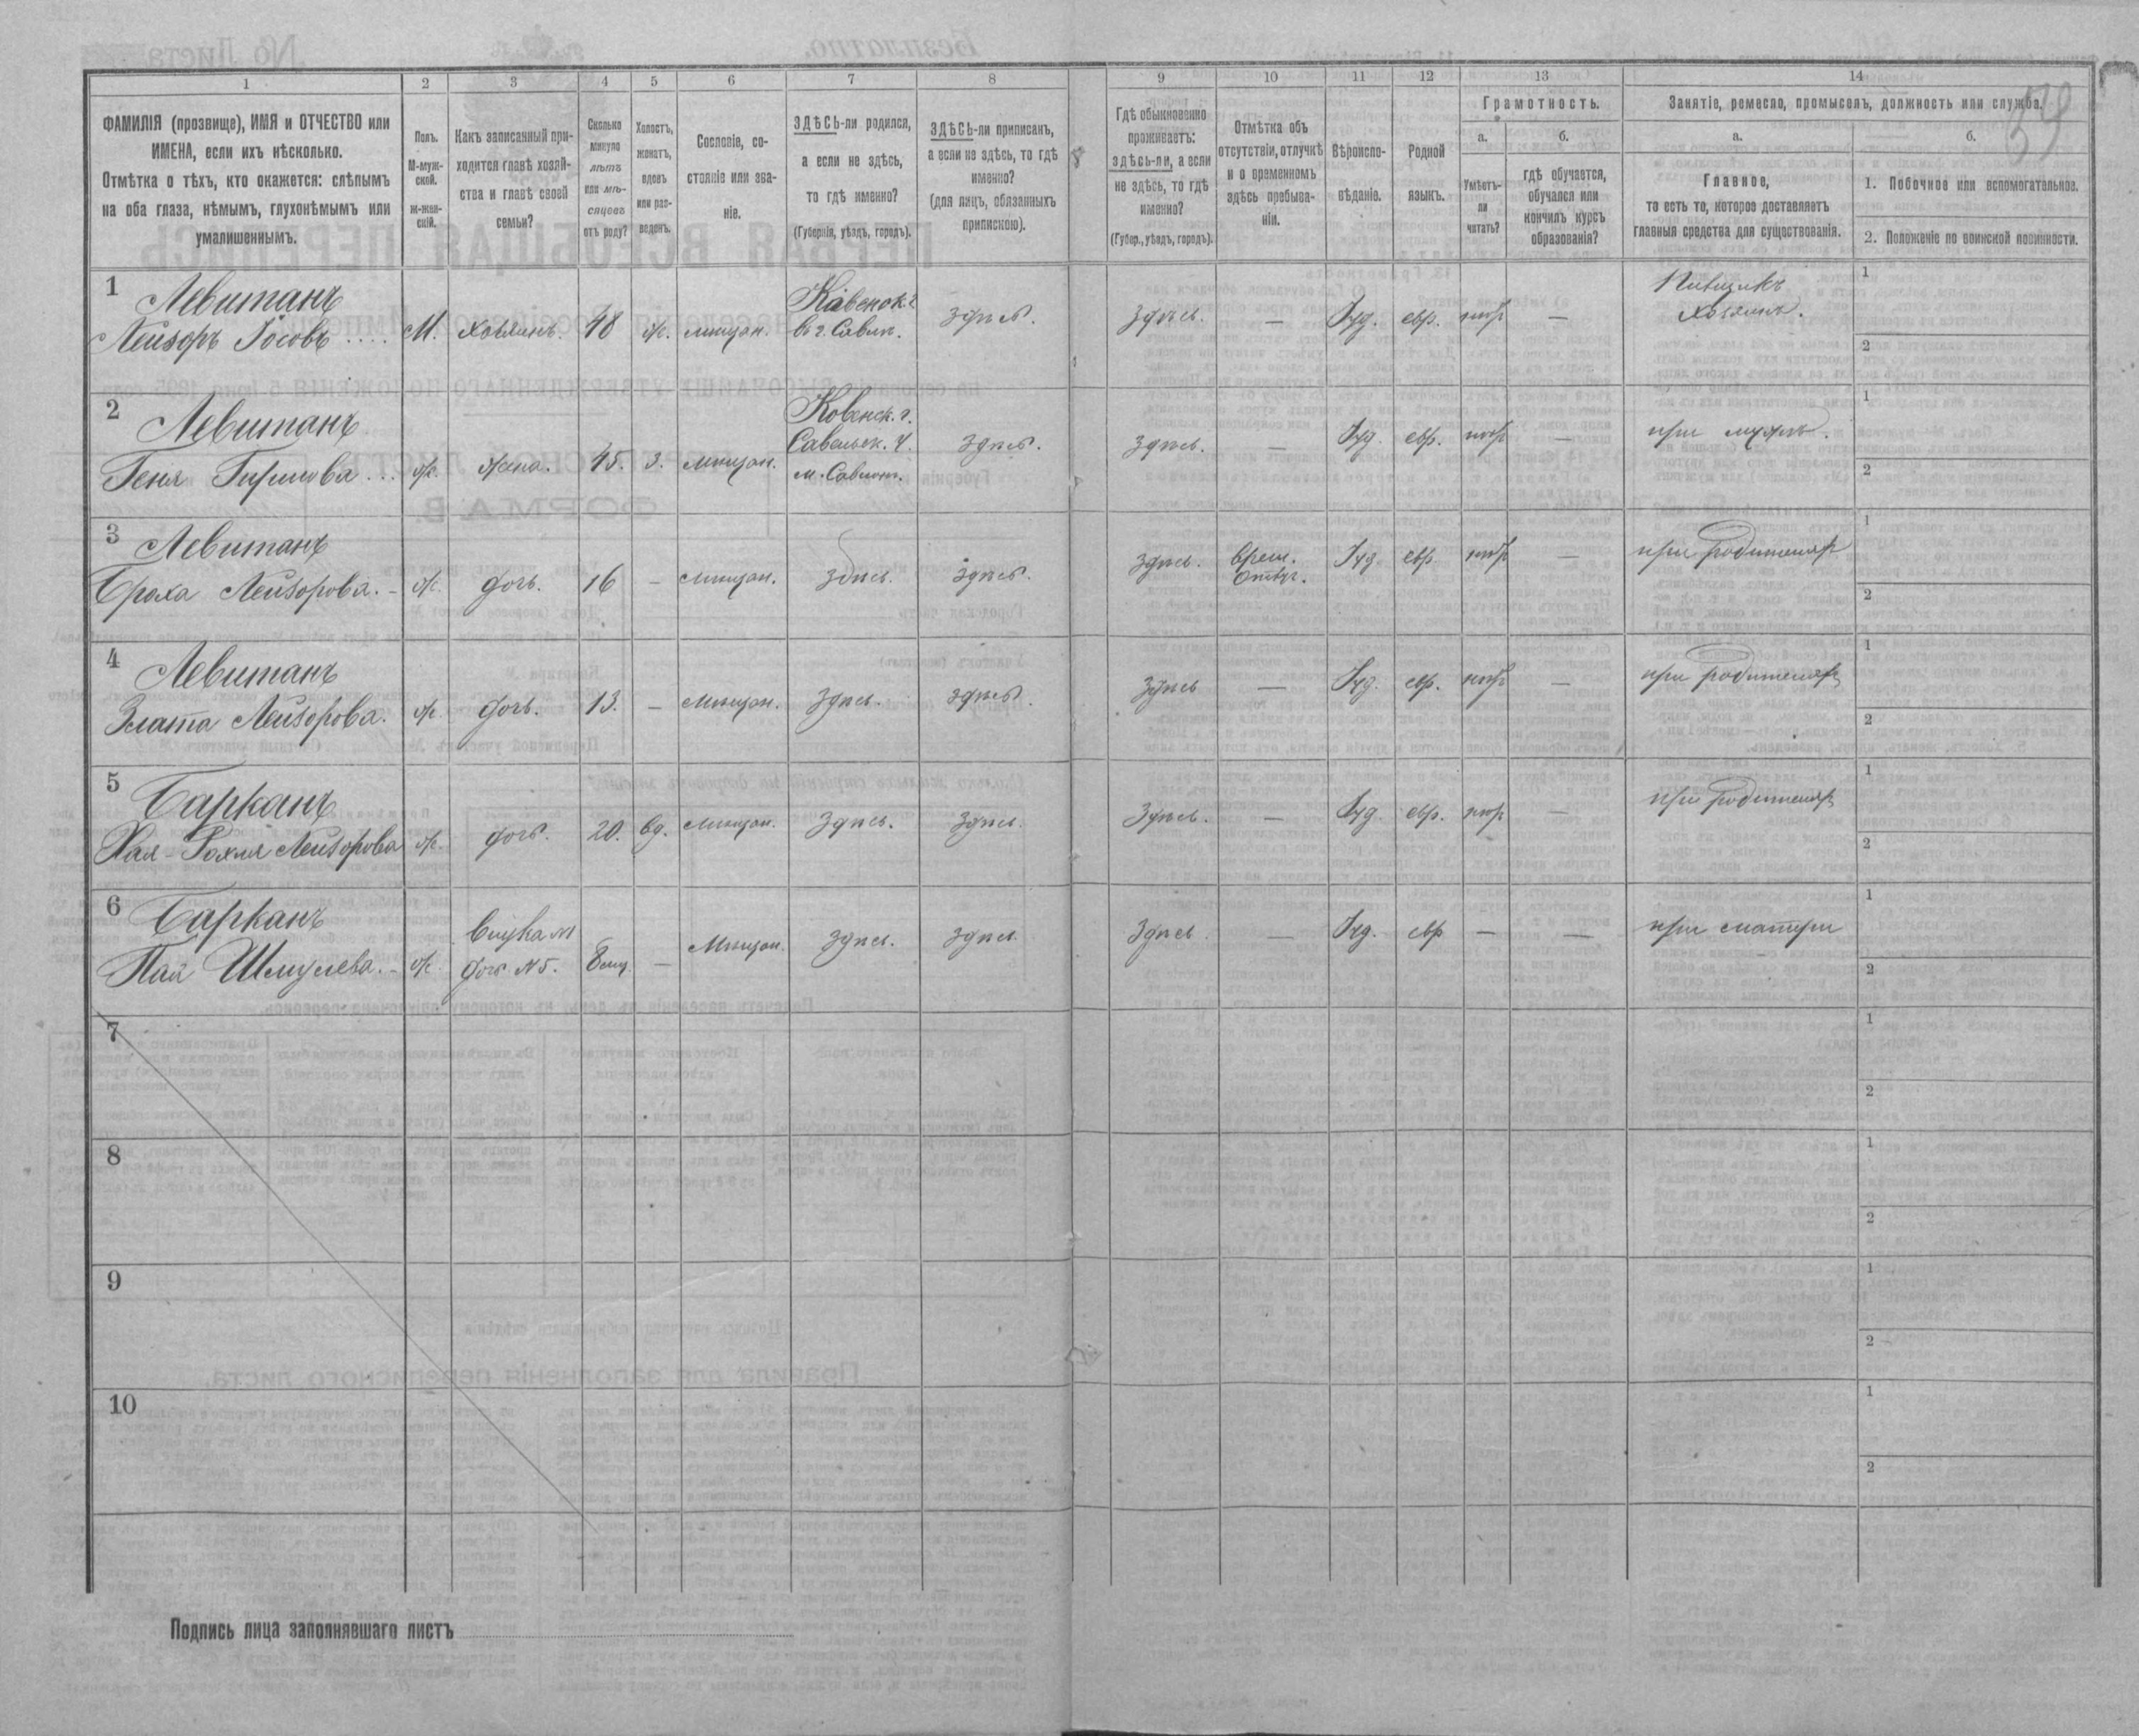 59
1 2 3 4 5 6 7 8 9 10 11 12 13 14
ФАМИЛІЯ (прозвище), ИМЯ и ОТЧЕСТВО или
ИМЕНА, если ихъ нѣсколько.
Отмѣтка о тѣхъ, кто окажется: слѣпымъ
на оба глаза, нѣмымъ, глухонѣмымъ или
умалишеннымъ.
Полъ.
М-муж-
ской.
Ж-жен-
скій.
Какъ записанный при-
ходится главѣ хозяй-
ства и главѣ своей
семьи?
Сколько
минуло
лѣтъ
или мѣ-
сяцевъ
отъ роду?
Холостъ,
женатъ,
вдовъ
или раз-
веденъ.
Сословіе, со-
стояніе или зва-
ніе.
ЗДѢСЬ-ли родился,
а если не здѣсь,
то гдѣ именно?
(Губернія, уѣздъ, городъ).
ЗДѢСЬ-ли приписанъ,
а если не здѣсь, то гдѣ
именно?
(для лицъ, обязанныхъ
припискою).
Гдѣ обыкновенно
проживаетъ:
здѣсь-ли, а если
не здѣсь, то гдѣ
именно?
(Губер., уѣздъ, городъ).
Отмѣтка объ
отсутствіи, отлучкѣ
и о временномъ
здѣсь пребыва-
ніи.
Вѣроиспо-
вѣданіе.
Родной
языкъ.
Грамотность.
а.
Умѣетъ-
ли
читать?
б.
гдѣ обучается,
обучался или
кончилъ курсъ
образованія?
Занятіе, ремесло, промыселъ, должность или служба.
а.
Главное,
то есть то, которое доставляетъ
главныя средства для существованія.
б.
1. Побочное или вспомогательное.
2. Положеніе по воинской повинности.
1 Левитанъ
Лейзоръ Іосовъ М. Хозяинъ. 48 ж. мѣщан. Ковенск. г. здѣсь. здѣсь. — Іуд. евр. — Хозяинъ.
1
2
2 Левитанъ
Геня Гиршова ж. жена. 45. з. мѣщан. Ковенск. г. здѣсь. здѣсь. — Іуд. евр. — при мужѣ.
1
2
3 Левитанъ
Броха Лейзорова. ж. дочь. 16 — мѣщан. здѣсь. здѣсь. здѣсь. Врем. Іуд. евр. — при родителяхъ
1
2
4 Левитанъ
Злата Лейзорова. ж. дочь. 13. — мѣщан. здѣсь. здѣсь. здѣсь — Іуд. евр. — при родителяхъ
1
2
5 Барканъ
Хая-Рохля Лейзорова ж. дочь. 20. вд. мѣщан. здѣсь. здѣсь. здѣсь. — Іуд. евр. — при родителяхъ
1
2
6 Барканъ
Шмулева. ж. внучка №1
дочь №5. 8 мѣс. — мѣщан. здѣсь. здѣсь здѣсь. — Іуд. евр — — при матери
1
2
7
1
2
8
1
2
9
1
2
10
1
2
Подпись лица заполнявшаго листъ